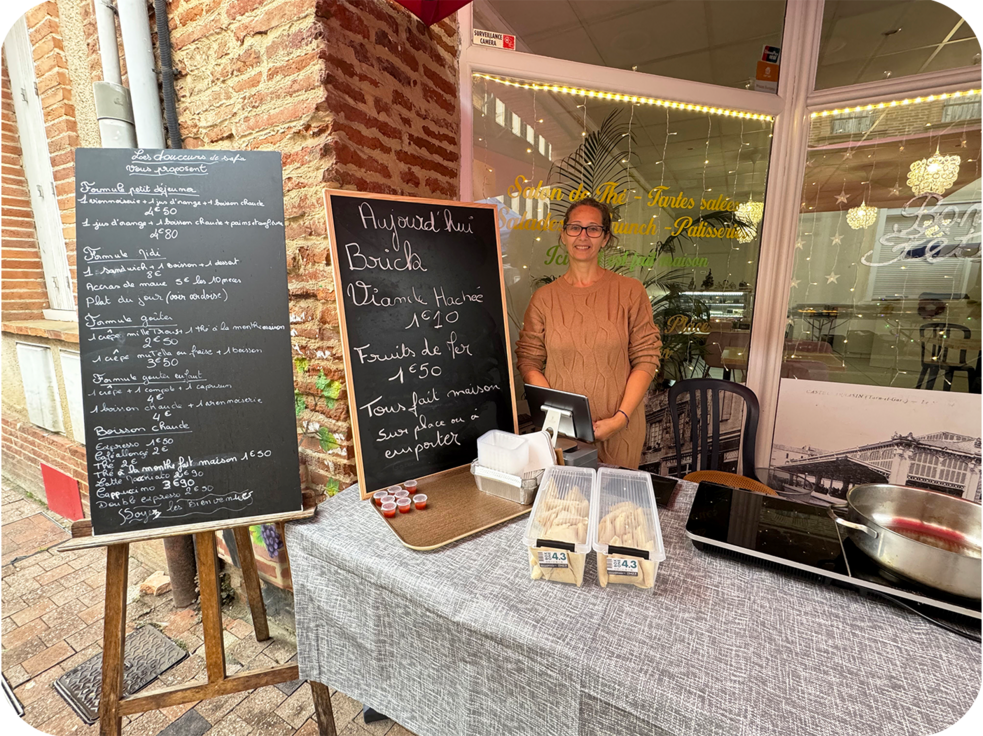 Les douceurs de safia
Vous proposent
Formule petit déjeuner
1 viennoiserie + 1 jus d'orange + 1 boisson chaude
4€50
1 jus d'orange + 1 boisson chaude + pain confiture
4€80
Formule Midi
1 sandwich + 1 boisson + 1 dessert
8€
Accras de morue 5€ les 10 pièces
Plat du jour (voir ardoise)
Formule goûter
1 crêpe mille trous + 1 thé à la menthe maison
2€50
1 crêpe nutella ou fraise + 1 boisson
3€50
Formule goûter enfant
1 crêpe + 1 compote + 1 caprisun
4€
1 boisson chaude + 1 viennoiserie
4€
Boisson chaude
Expresso 1€50
Café allongé 2€
Thé 2€
Thé à la menthe fait maison 1€50
Latte Macchiato 2€90
Cappuccino 3€90
Double expresso 2€50
Soyez les Bienvenues
Aujourd'hui
Brick
Viande Hachée
1€10
Fruits de Mer
1€50
Tous fait maison
sur place ou à
emporter
SURVEILLANCE
CAMÉRA
Salon de Thé - Tartes salées
Salades - Brunch - Patisserie
Ici est fait maison
Place
4.3
4.3